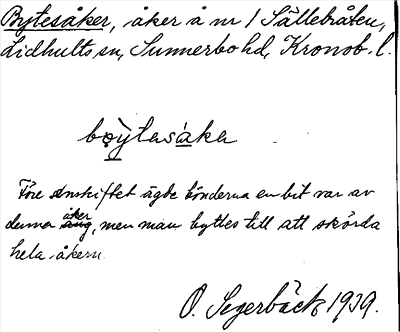 Bytesåker, åker å nr 1 Sällebråten,
Lidhults sn, Sunnerbo hd, Kronob. l.
bøytasaka
Före enskiftet ägde bönderna en bit var av
denna åker, men man byttes till att skörda
hela åkern.
O. Segerbäck, 1939.